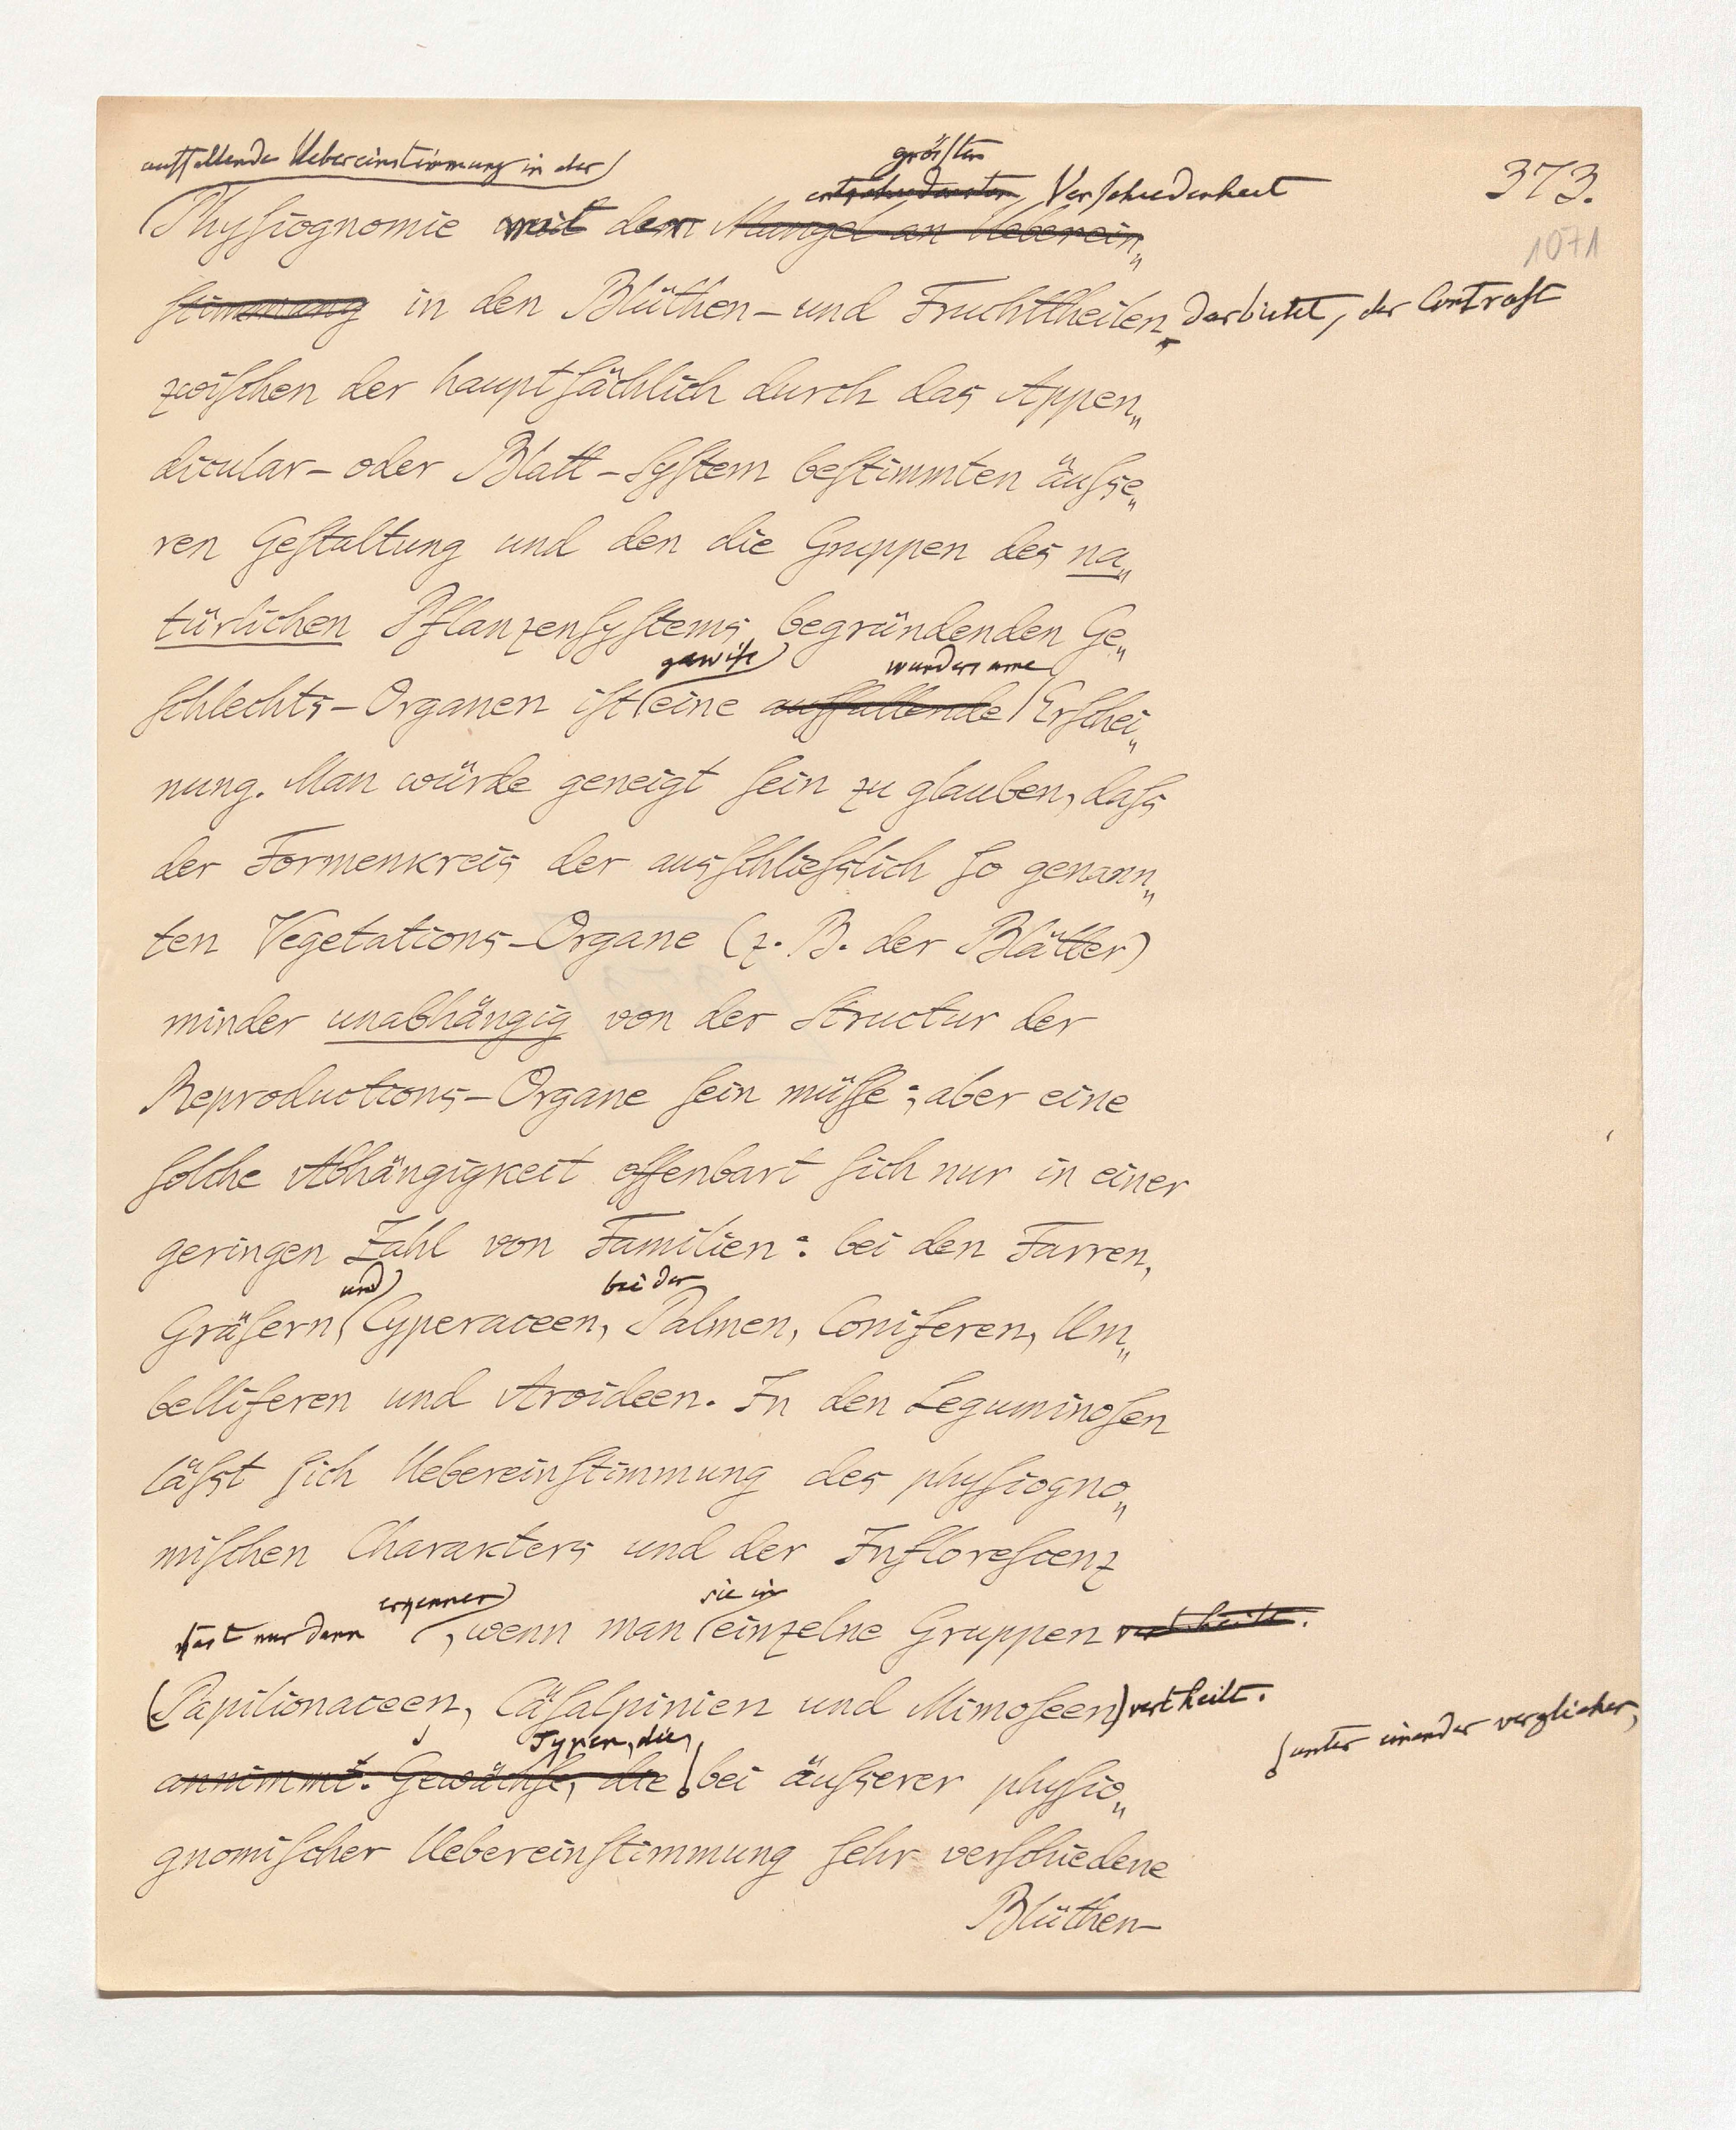 auffallende Uebereinstimmung in der
größten
373.
entschiedensten Verschiedenheit
Physiognomie mit dem Mangel an Ueberein„
1071
stimmung in den Blüthen- und Fruchttheilen darbietet, der Contrast
zwischen der hauptsächlich durch das Appen„
dicular- oder Blatt-System bestimmten äusse„
ren Gestaltung und den die Gruppen des na„
türlichen Pflanzensystems begründenden Ge„
gewiß wundersame
schlechts-Organen ist eine auffallende Erschei„
nung. Man würde geneigt sein zu glauben, dass
der Formenkreis der ausschliesslich so genann„
ten Vegetations-Organe (z. B. der Blätter)
minder unabhängig von der Structur der
Reproductions-Organe sein müsse; aber eine
solche Abhängigkeit offenbart sich nur in einer
geringen Zahl von Familien: bei den Farren,
und bei der
Gräsern, Cyperaceen, Palmen, Coniferen, Um„
belliferen und Aroideen. In den Leguminosen
lässt sich Uebereinstimmung des physiogno„
mischen Charakters und der Inflorescenz
erkennen sie in
fast nur dann , wenn man einzelne Gruppen vertheilt.
(Papilionaceen, Cäsalpinien und Mimoseen) vertheilt.
unter einander verglichen,
Typen, die,
annimmt. Gewächse, die bei äusserer physio„
gnomischer Uebereinstimmung sehr verschiedene
Blüthen-